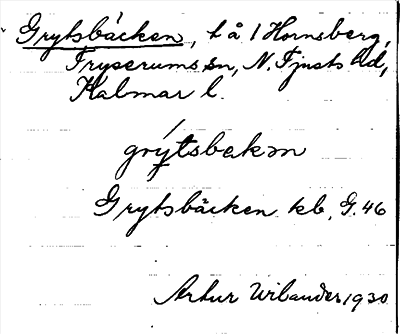 Grytsbäcken, t å 1 Hornsberg,
Tryserums sn, N. Tjusts hd,
Kalmar l.
grýtsbekən
Grytsbäcken kb, G. 46
Artur Wibander 1930